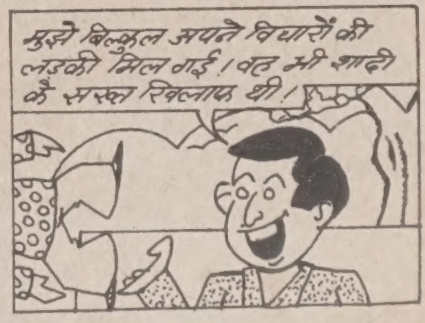 मुझे बिल्कुल अपने विचारों की
लड़की मिल गई! वह भी शादी
के सख्त खिलाफ थी!